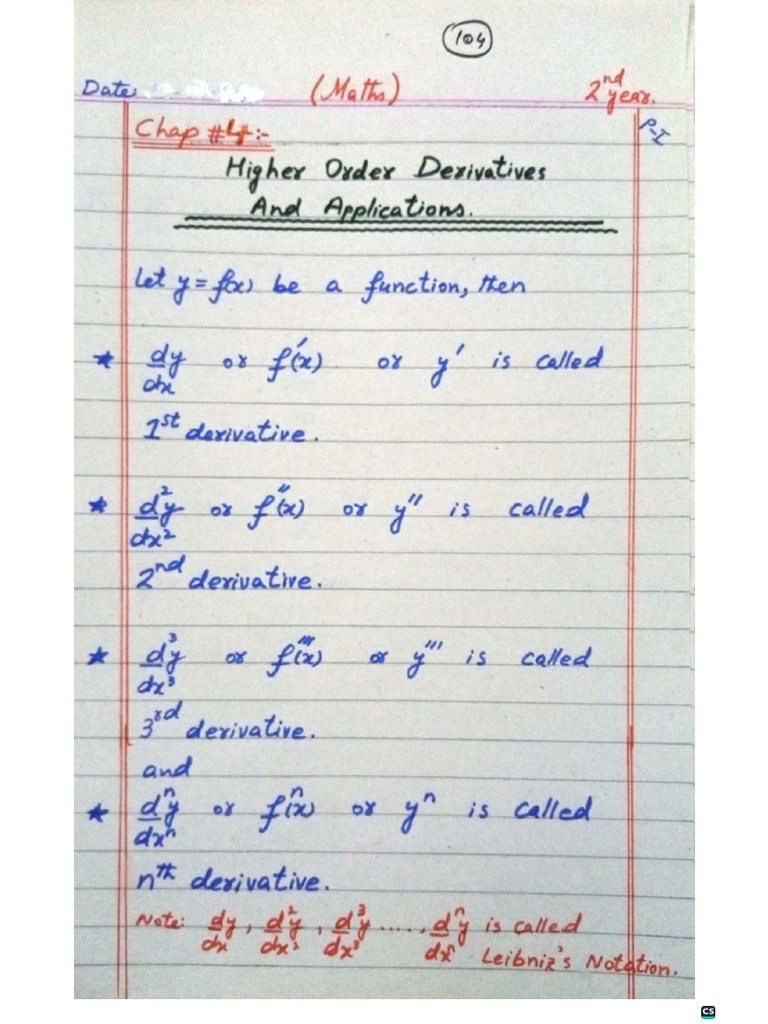 104
Date: (Maths) 2nd year.
P-I
Chap #4:-
Higher Order Derivatives
And Applications.
Let y = f(x) be a function, then
* dy/dx or f'(x) or y' is called
1st derivative.
* d²y/dx² or f''(x) or y'' is called
2nd derivative.
* d³y/dx³ or f'''(x) or y''' is called
3rd derivative.
and
* dⁿy/dxⁿ or fⁿ(x) or yⁿ is called
nth derivative.
Note: dy/dx, d²y/dx², d³y/dx³ ....., dⁿy/dxⁿ is called
Leibniz's Notation.
CS